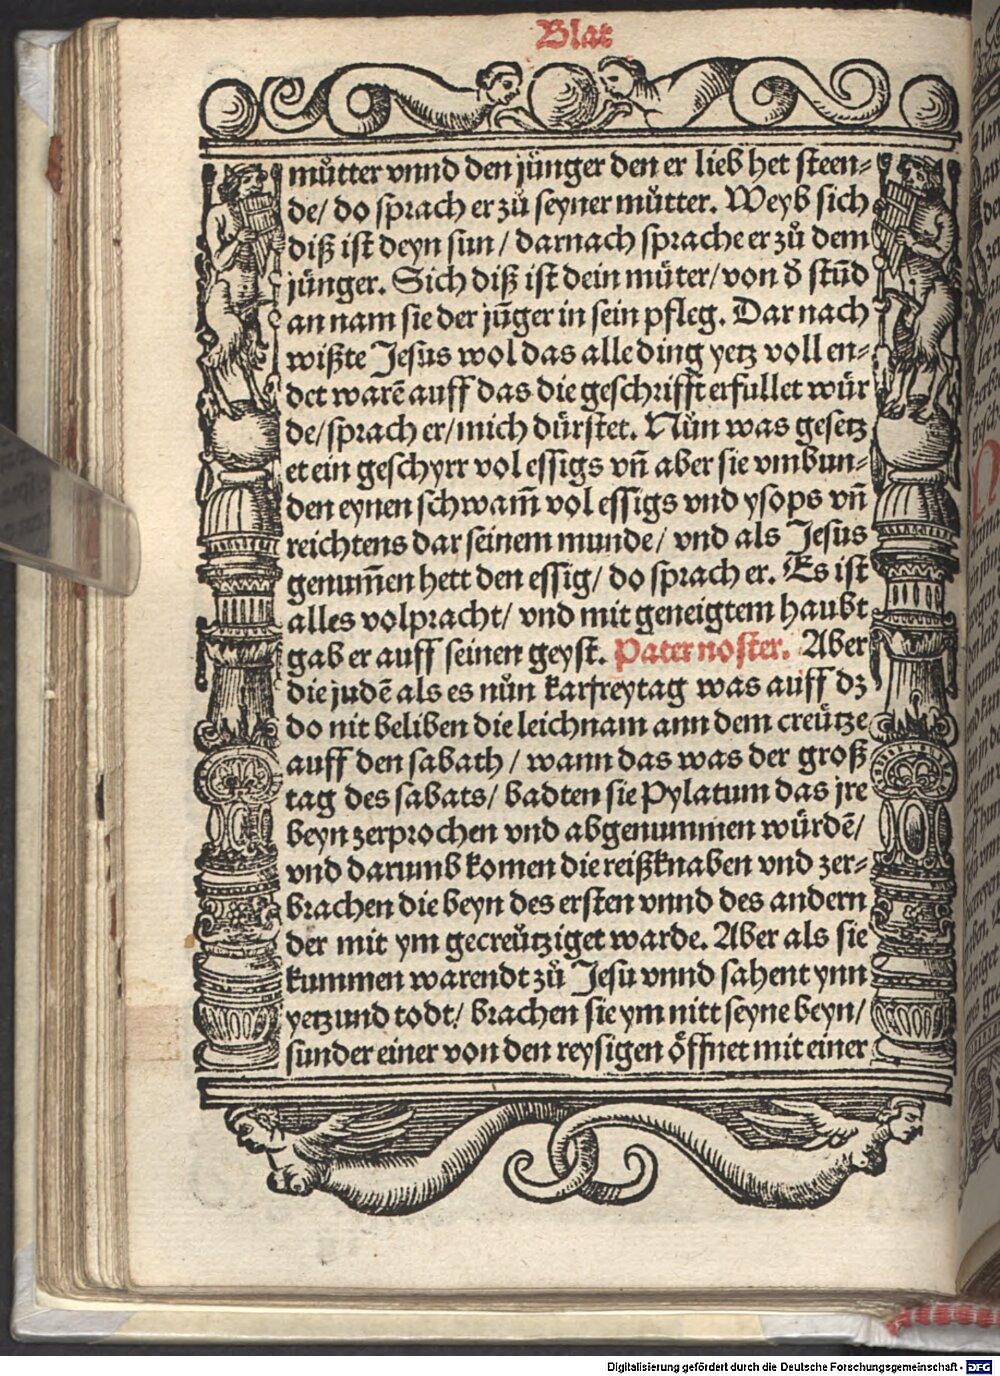 Blat
mu̍tter vnnd den jünger den er lieb het steen⸗
de/ do sprach er zů seyner můtter. Weyb sich
diß ist deyn sun / darnach sprache er zů dem
jünger. Sich diß ist dein můter/ von d̕ stūd
an nam sie der jünger in sein pfleg. Dar nach
wißte Jesus wol das alle ding yetz voll en⸗
det warē auff das die geschrifft erfullet wür
de/ sprach er/ mich dürstet. Nůn was gesetz
et ein geschyrr vol essigs vn̄ aber sie vmbun⸗
den eynen schwam̄ vol essigs vnd ysops vn̄
reichtens dar seinem munde/ vnd als Jesus
genum̄en hett den essig/ do sprach er. Es ist
alles volpracht/ vnd mit geneigtem haubt
gab er auff seinen geyst. Pater noster. Aber
die judē als es nůn karfreytag was auff dz
do nit beliben die leichnam ann dem creütze
auff den sabath / wann das was der groß
tag des sabats/ badten sie Pylatum das jre
beyn zerprochen vnd abgenummen würdē/
vnd darumb komen die reißknaben vnd zer⸗
brachen die beyn des ersten vnnd des andern
der mit ym gecreütziget warde. Aber als sie
kummen warendt zů Jesu vnnd sahent ynn
yetzund todt/ brachen sie ym nitt seyne beyn/
sunder einer von den reysigen öffnet mit einer
Digitalisierung gefördert durch die Deutsche Forschungsgemeinschaft - DFG